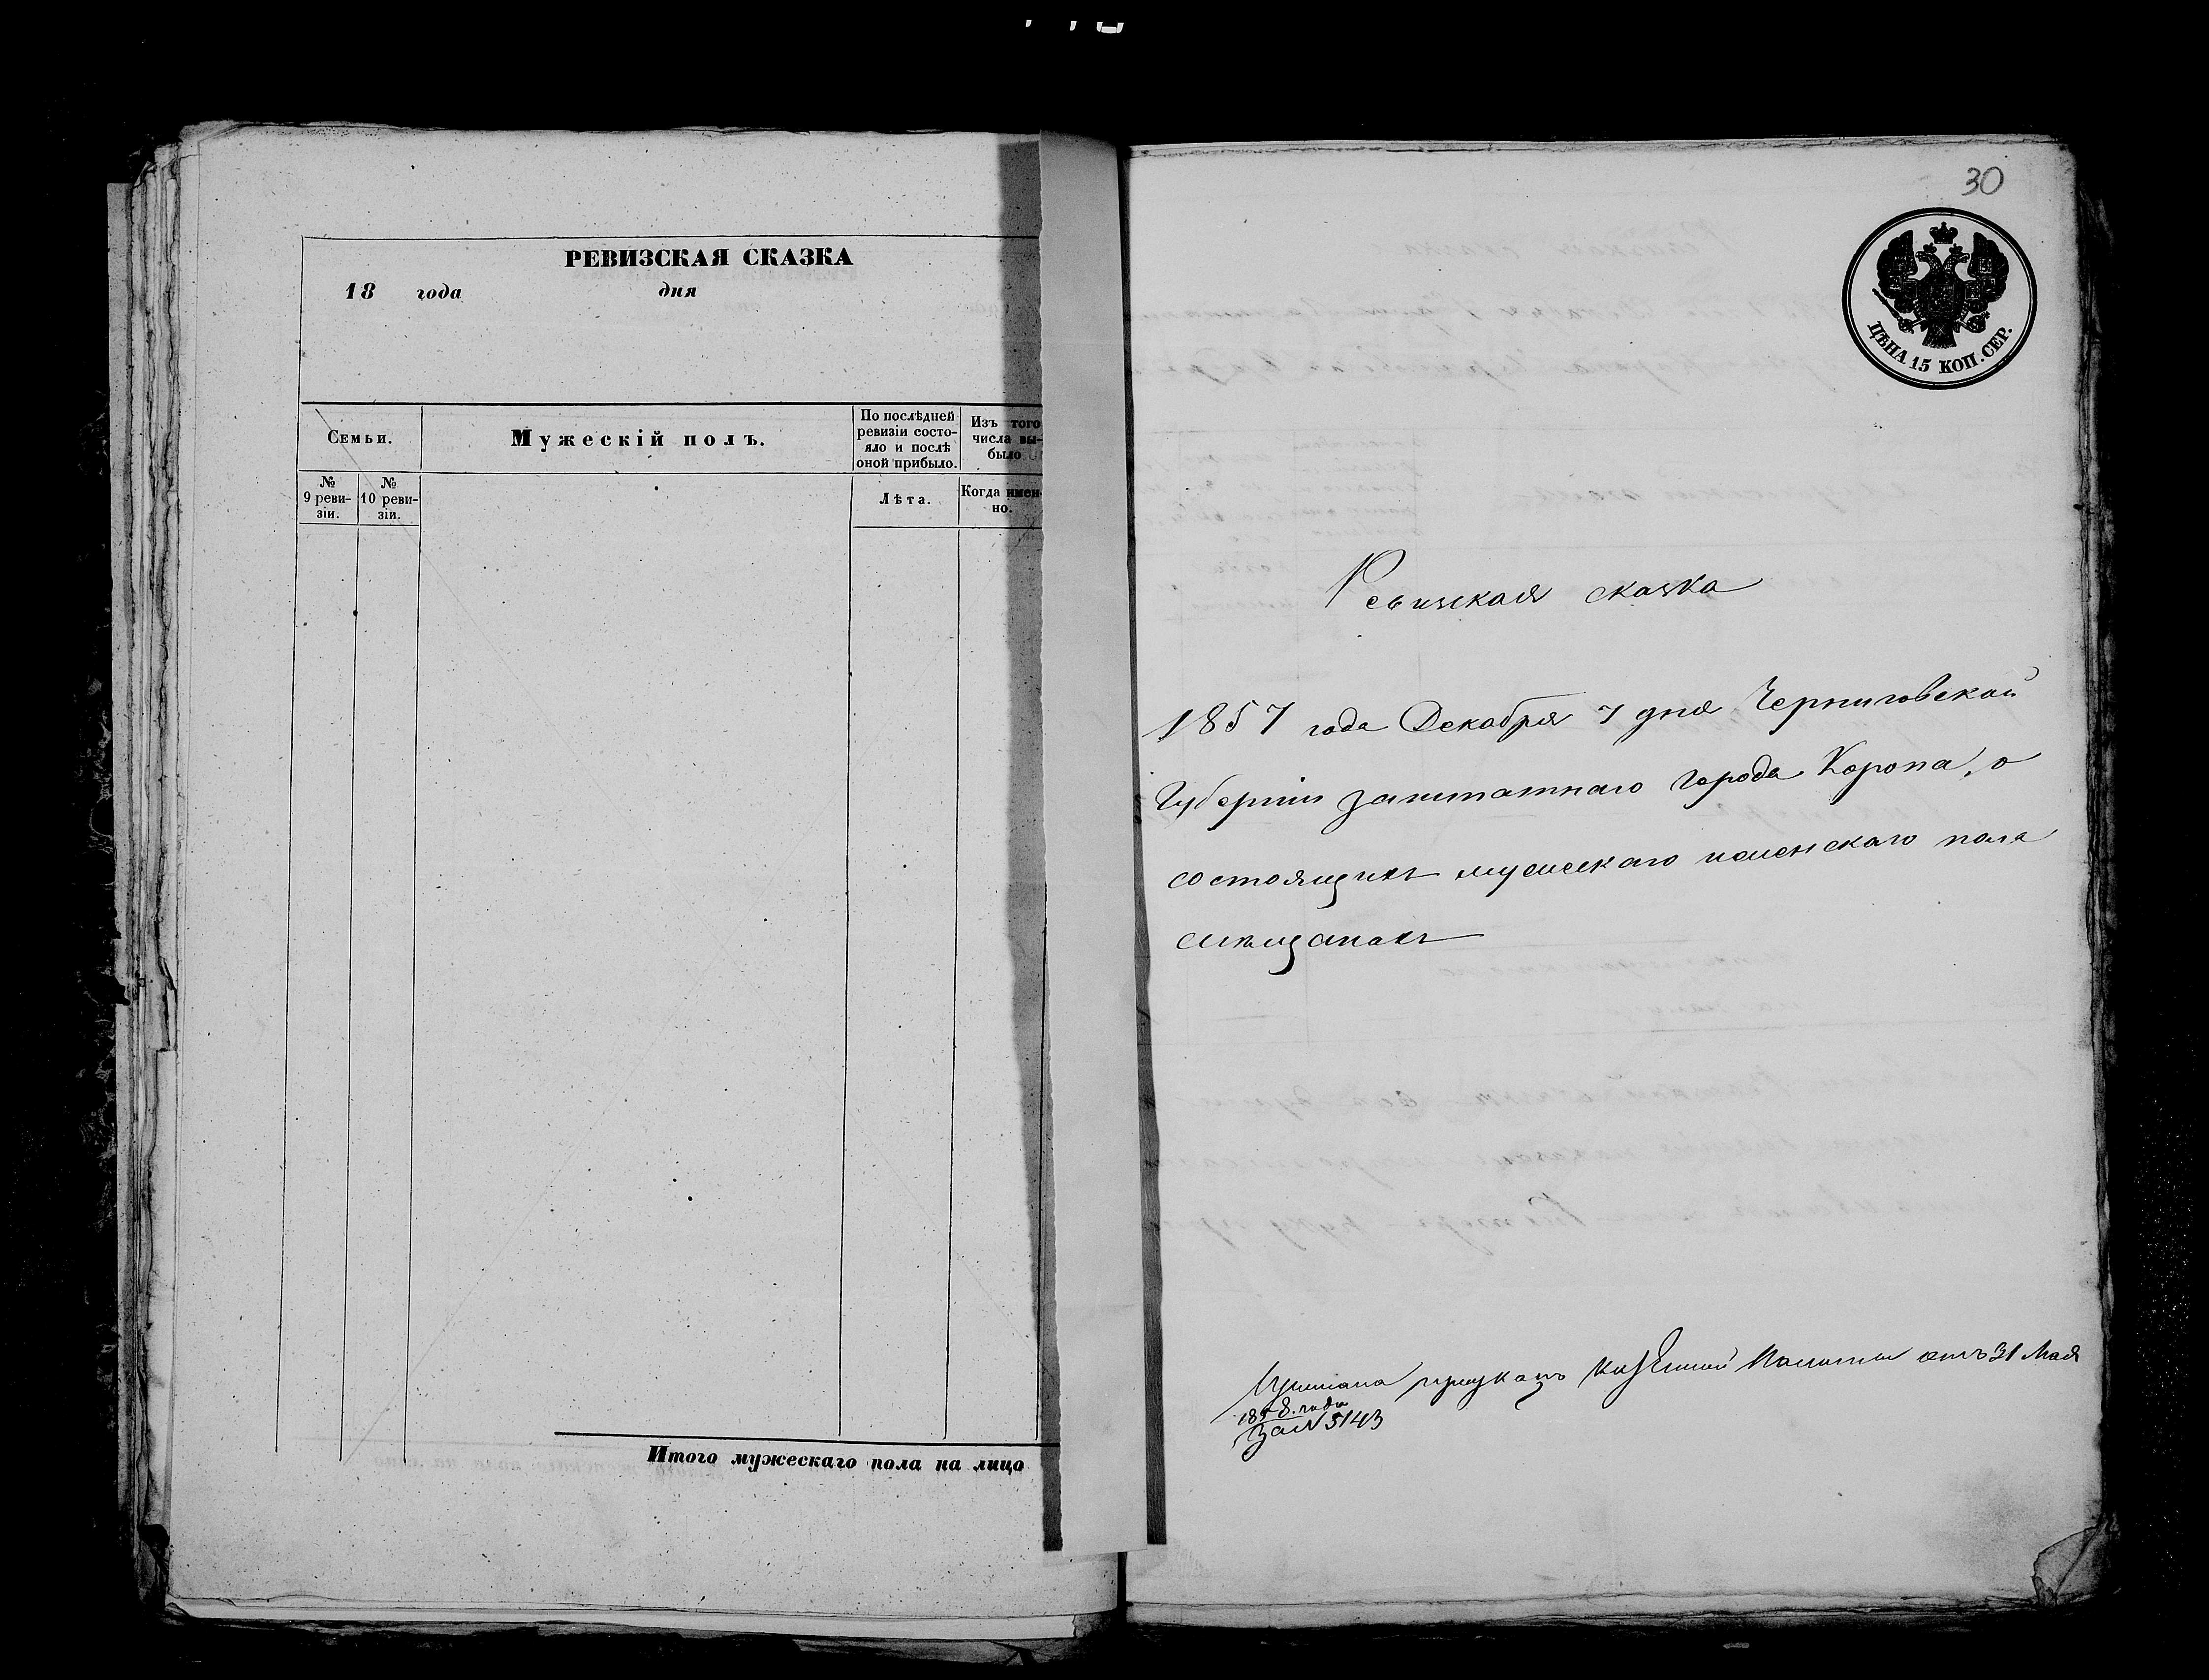 РЕВИЗСКАЯ СКАЗКА
18 года дня
Семьи.
Мужескій полъ.
По послѣдней ревизіи состо-
яло и послѣ
оной прибыло.
Изъ того
числа вы-
было
№
9 реви-
зіи.
№
10 реви-
зіи.
Лѣта.
Когда имен-
но.
Итого мужескаго пола на лицо
30
ЦѢНА 15 КОП. СЕР.
Ревизская сказка
1857 года Декабря 7 дня Черниговской
Губерніи заштатнаго города Коропа, о
состоящихъ мужескаго и женскаго пола
мѣщанахъ
Казенной Палаты отъ 31 Мая
1858. года
За №5143